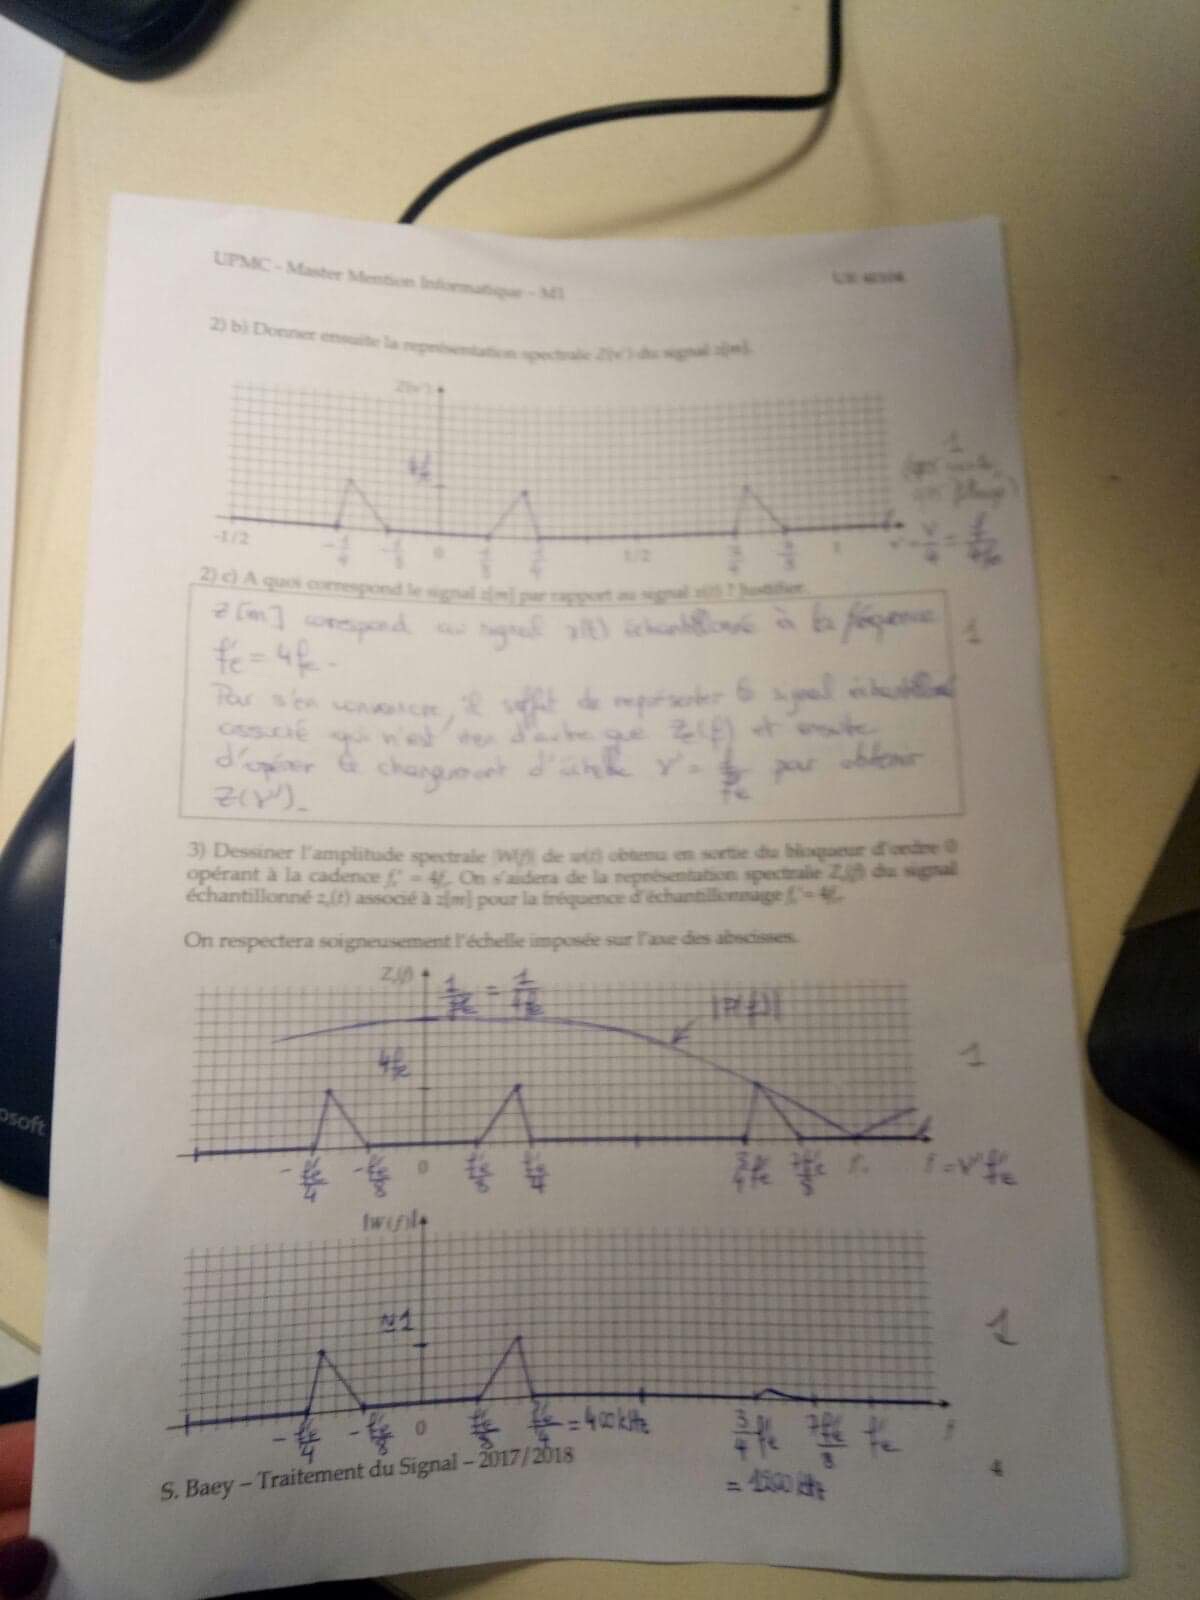 UPMC - Master Mention Informatique - M1
2) b) Donner ensuite la représentation spectrale Z(ν') du signal z[m].
Z(ν')
4fe
1
-1/2 -1/4 -1/8 0 1/8 1/4 1/2 3/4 7/8 1
2) c) A quoi correspond le signal z[m] par rapport au signal x(t) ? Justifier.
z[m] correspond au signal x(t) échantillonné à la fréquence
f'e = 4fe.
1
Pour s'en convaincre, il suffit de représenter le signal échantillonné
associé qui n'est rien d'autre que Ze(f) et ensuite
d'opérer le changement d'échelle ν' = f/f'e pour obtenir
Z(ν').
3) Dessiner l'amplitude spectrale |W(f)| de w(t) obtenu en sortie du bloqueur d'ordre 0
opérant à la cadence fe' = 4fe. On s'aidera de la représentation spectrale Ze(f) du signal
échantillonné ze(t) associé à z[m] pour la fréquence d'échantillonnage fe' = 4fe.
On respectera soigneusement l'échelle imposée sur l'axe des abscisses.
Ze(f)
4fe
1
-f'e/4 -f'e/8 0 f'e/8 f'e/4 3/4 f'e 7f'e/8 f = ν'f'e
|W(f)|
≈1
1
-f'e/4 -f'e/8 0 f'e/8 f'e/4 = 400 kHz 3/4 f'e 7f'e/8 f'e f
= 1200 kHz
S. Baey – Traitement du Signal – 2017/2018
4
osoft